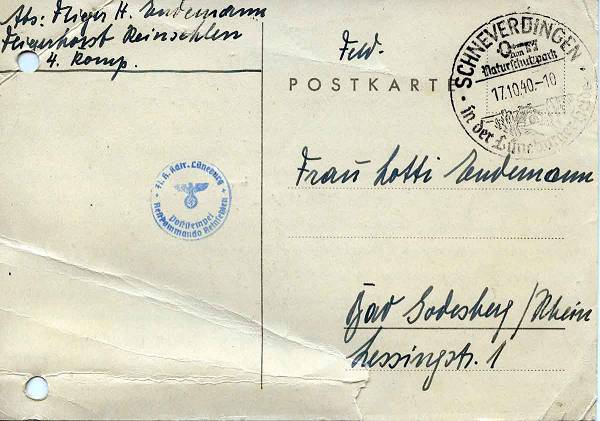 Abs: Flieger H. Endemann
Fliegerhorst Reinsehlen
4. Komp.
Feld-
POSTKARTE
SCHNEVERDINGEN
Naturschutzpark
17.10.40.-10
in der Lüneburger Heide
Fl. H. Kdtr. Lüneburg
Poststempel
Restkommando Reinsehlen
Frau Lotti Endemann
Bad Godesberg/Rhein
Lessingstr. 1